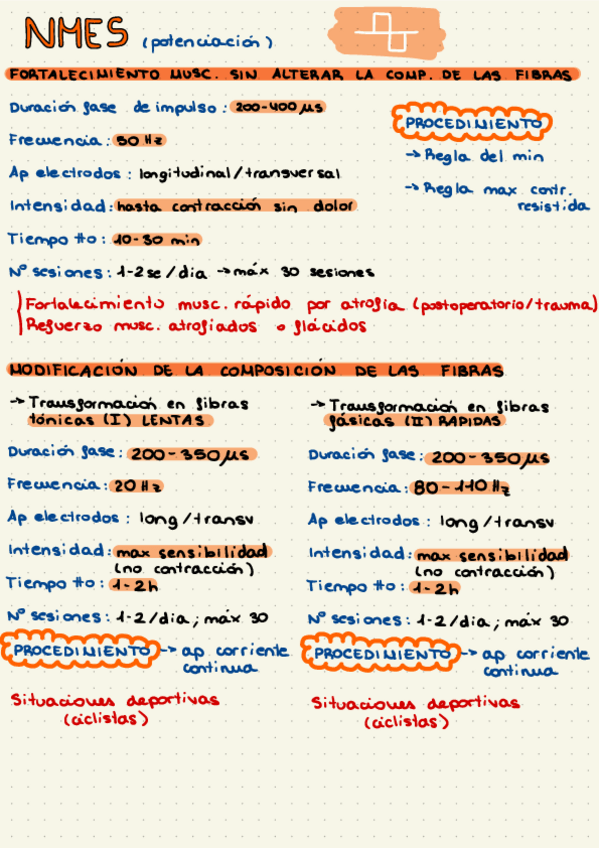 NMES (potenciación)
FORTALECIMIENTO MUSC. SIN ALTERAR LA COMP. DE LAS FIBRAS
Duración fase de impulso: 200-400 µs
Frecuencia: 50 Hz
Ap electrodos: longitudinal/transversal
Intensidad: hasta contracción sin dolor
Tiempo tto: 10-30 min
Nº sesiones: 1-2 se/dia → máx 30 sesiones
PROCEDIMIENTO
→ Regla del min
→ Regla max contr.
resistida
Fortalecimiento musc. rápido por atrofia (postoperatorio/trauma)
Refuerzo musc. atrofiados o flácidos
MODIFICACIÓN DE LA COMPOSICIÓN DE LAS FIBRAS
→ Transformación en fibras
tónicas (I) LENTAS
Duración fase: 200-350 µs
Frecuencia: 20 Hz
Ap electrodos: long/transv
Intensidad: max sensibilidad
(no contracción)
Tiempo tto: 1-2h
Nº sesiones: 1-2/dia; máx 30
PROCEDIMIENTO → ap corriente
continua
Situaciones deportivas
(ciclistas)
→ Transformación en fibras
fásicas (II) RAPIDAS
Duración fase: 200-350 µs
Frecuencia: 80-110 Hz
Ap electrodos: long/transv
Intensidad: max sensibilidad
(no contracción)
Tiempo tto: 1-2h
Nº sesiones: 1-2/dia; máx 30
PROCEDIMIENTO → ap corriente
continua
Situaciones deportivas
(ciclistas)